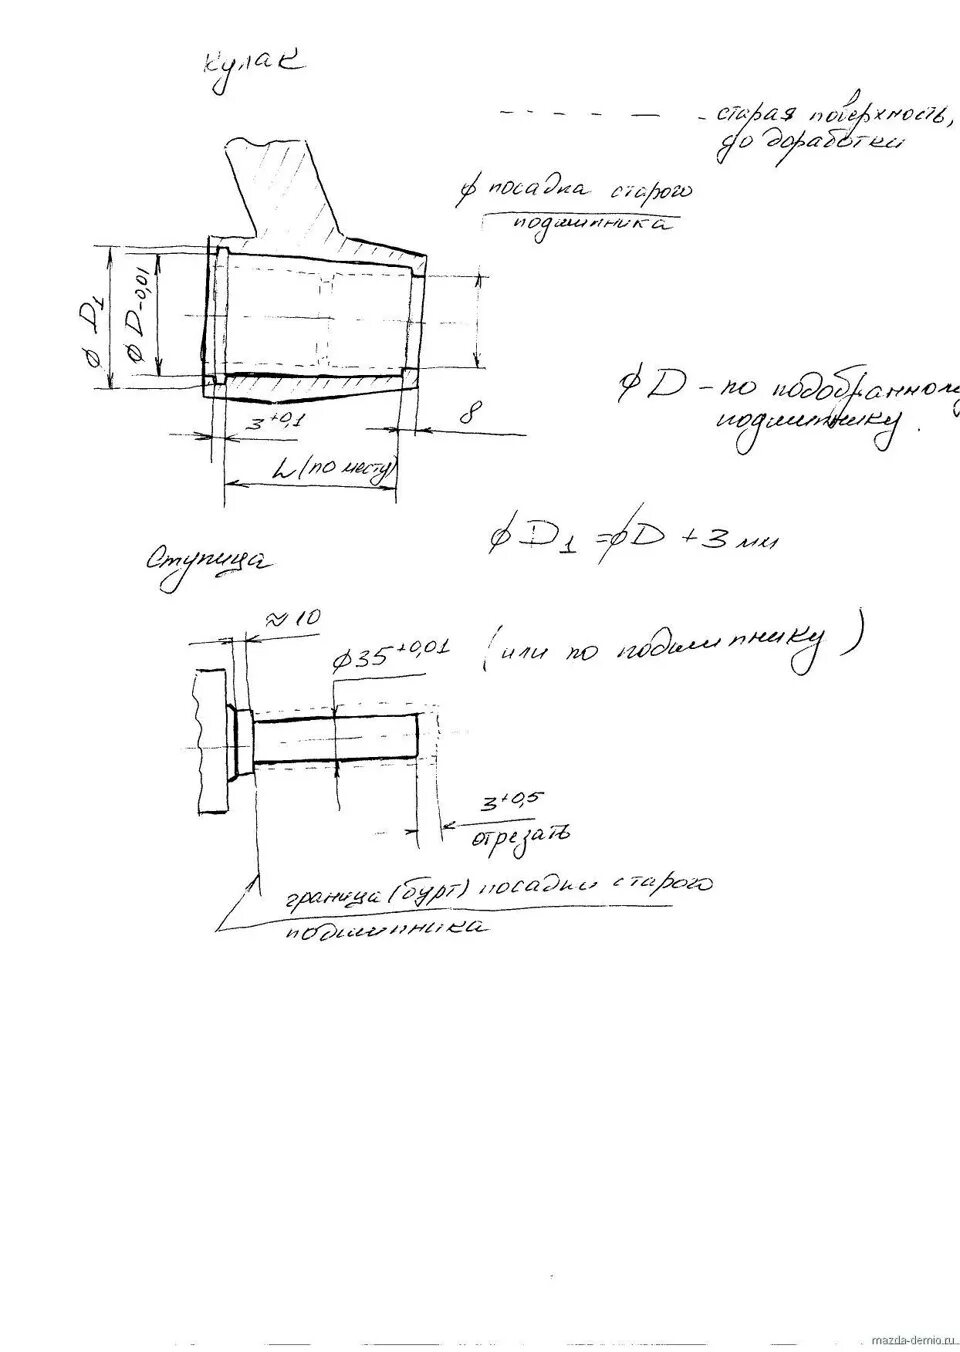 Кулак
- - - - - - старая поверхность,
до доработки
ϕ посадка старого
подшипника
ϕ D1
ϕ D-0,01
3+0,1
8
L (по месту)
ϕ D - по подобранному
подшипнику.
ϕ D1 = ϕ D + 3 мм
Ступица
≈ 10
ϕ35+0,01 (или по подшипнику)
3+0,5
отрезать
граница (бурт) посадки старого
подшипника
mazda-demio.ru